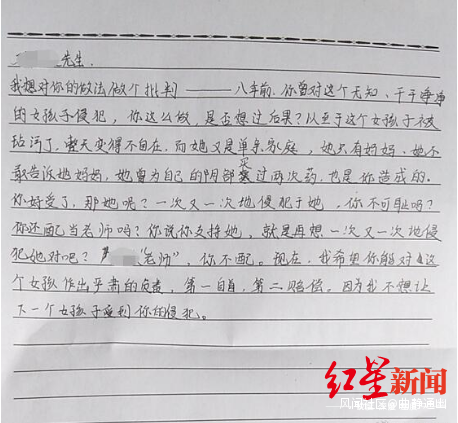 先生.
我想对你的做法做个批判——八年前.你曾对这个无知、干干净净
的女孩子侵犯,你这么做,是否想过后果?从至于这个女孩子被
玷污了.整天变得不自在.而她又是单亲家庭,她只有妈妈、她不
敢告诉她妈妈,她曾为自己的阴部买过两次药,也是你造成的.
你好受了,那她呢?一次又一次地侵犯于她.你不可耻吗?
你还配当老师吗?你说你支持她,就是再想一次又一次地侵
犯她对吧?"老师",你不配.现在,我希望你能对这
个女孩作出严肃的负责,第一自首,第二赔偿.因为我不想让
下一个女孩子受到你的侵犯。
红星新闻
风闻社区@曲静道出